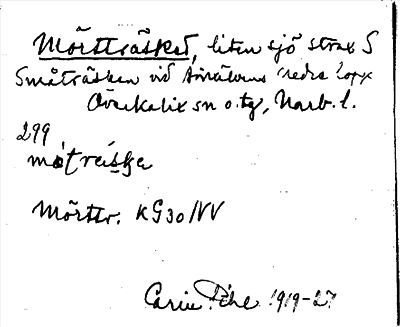 Mörtträsket, liten sjö strax S
Småträsken vid Ängesåns nedre lopp
Överkalix sn o. tg, Norrb. l.
299
Mörttr. KG30/NV
Carin Pihl 1919-27